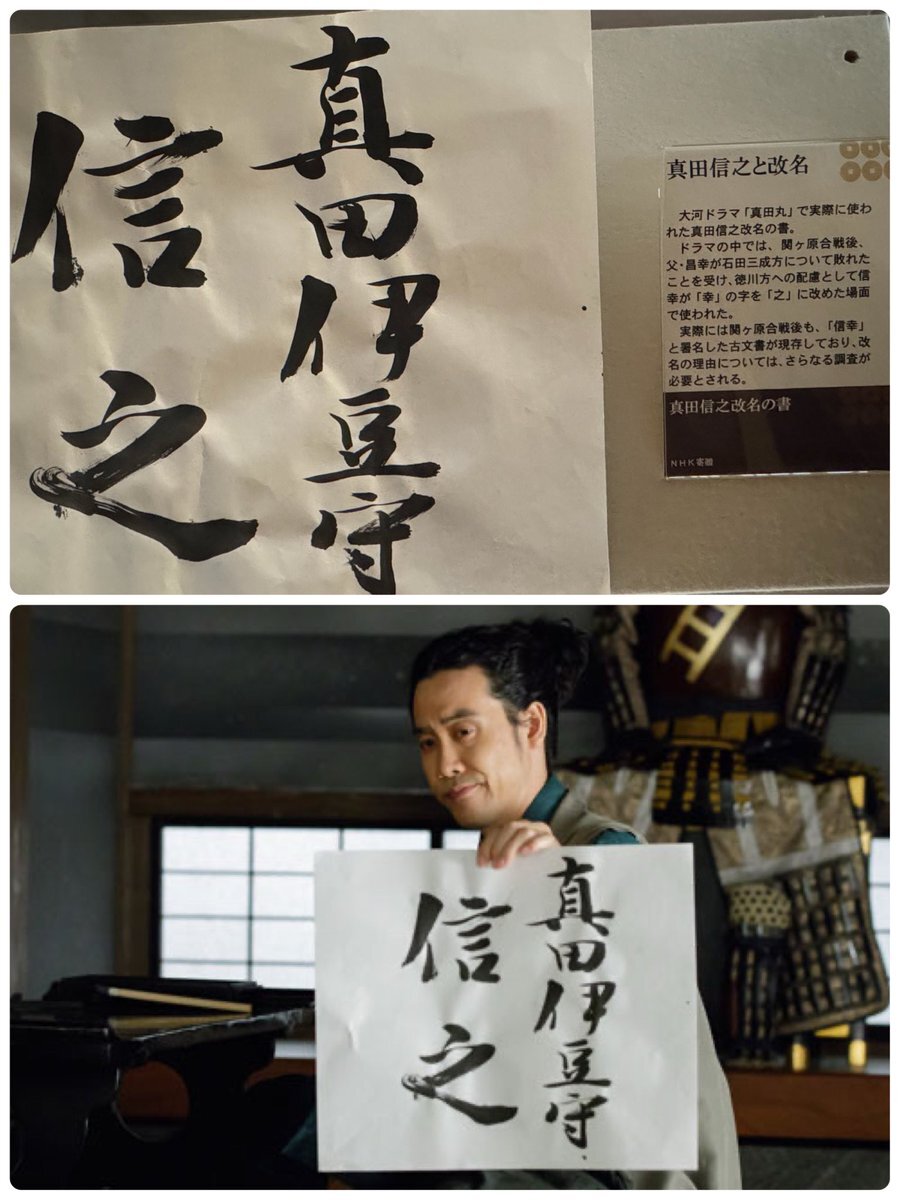 真田伊豆守
信之
真田信之と改名
大河ドラマ「真田丸」で実際に使わ
れた真田信之改名の書。
ドラマの中では、関ヶ原合戦後、
父・昌幸が石田三成方について敗れた
ことを受け、徳川方への配慮として信
幸が「幸」の字を「之」に改めた場面
で使われた。
実際には関ヶ原合戦後も、「信幸」
と署名した古文書が現存しており、改
名の理由については、さらなる調査が
必要とされる。
真田信之改名の書
NHK寄贈
真田伊豆守
信之